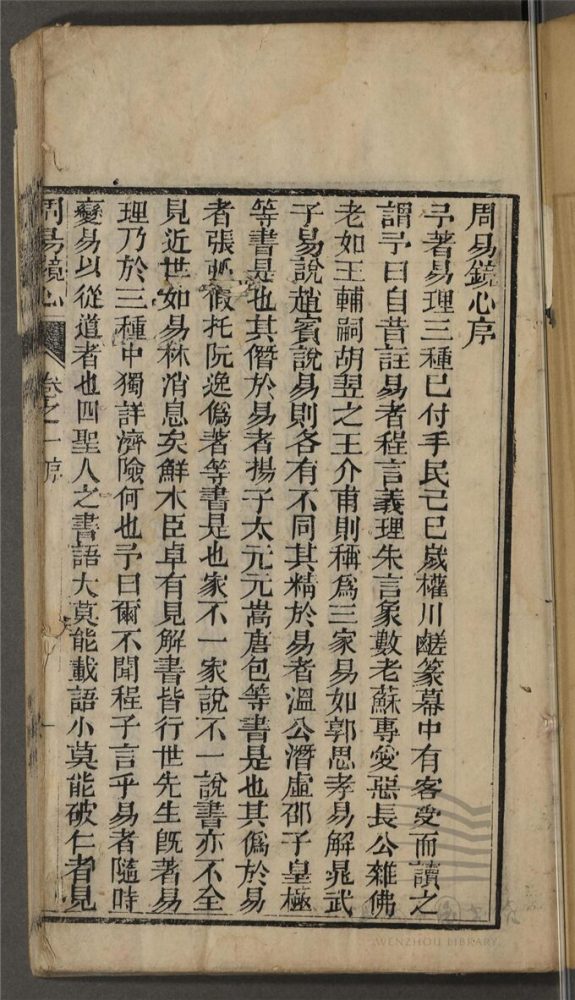 周易鏡心序
予著易理三種已付手民己巳歲權川鹺篆幕中有客受而讀之
謂予曰自昔註易者程言義理朱言象數老蘇專愛惡長公雜佛
老如王輔嗣胡翌之王介甫則稱爲三家易如郭思孝易解晁武
子易說趙賓說易則各有不同其精於易者溫公潛虛邵子皇極
等書是也其僭於易者揚子太元元嵩唐包等書是也其僞於易
者張弧假托阮逸僞著等書是也家不一家說不一說書亦不全
見近世如易林消息矣鮮木臣卓有見解書皆行世先生旣著易
理乃於三種中獨詳濟險何也予曰爾不聞程子言乎易者隨時
變易以從道者也四聖人之書語大莫能載語小莫能破仁者見
周易鏡心 卷之一序 一
WENZHOU LIBRARY